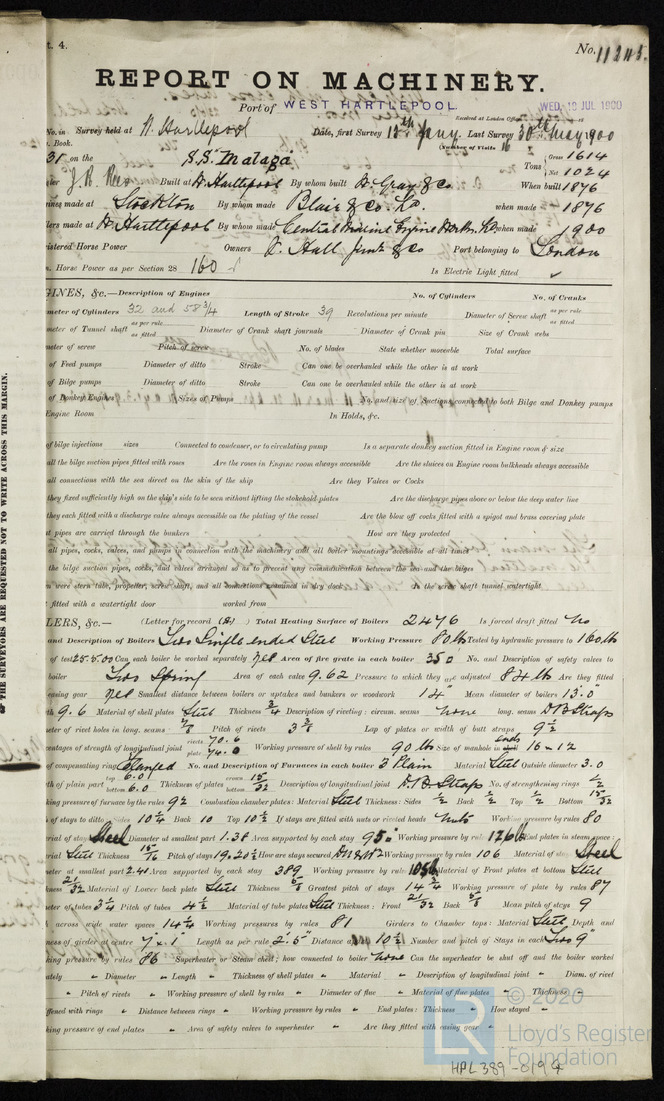 t. 4.
No. 11245.
REPORT ON MACHINERY.
Port of WEST HARTLEPOOL
Received at London Office WED. 18 JUL 1900
No. in Survey held at W. Hartlepool Date, first Survey 13th Jany. Last Survey 30th May 1900
Book. (Number of Visits 16
31 on the S.S. "Malaga" Tons Gross 1614 Net 1024
J. R. Rees Built at W. Hartlepool By whom built W. Gray & Co When built 1876
ines made at Stockton By whom made Blair & Co. Ld. when made 1876
lers made at W. Hartlepool By whom made Central Marine Engine Works. Ld when made 1900
istered Horse Power Owners J. Hall Junr & Co Port belonging to London
. Horse Power as per Section 28 160 Is Electric Light fitted
GINES, &c.—Description of Engines No. of Cylinders No. of Cranks
meter of Cylinders 32 and 58 3/4 Length of Stroke 39 Revolutions per minute Diameter of Screw shaft as per rule as fitted
meter of Tunnel shaft as per rule as fitted Diameter of Crank shaft journals Diameter of Crank pin Size of Crank webs
meter of screw Pitch of screw No. of blades State whether moveable Total surface
of Feed pumps Diameter of ditto Stroke Can one be overhauled while the other is at work
of Bilge pumps Diameter of ditto Stroke Can one be overhauled while the other is at work
of Donkey Engines Sizes of Pumps No. and size of Suctions connected to both Bilge and Donkey pumps
Engine Room In Holds, &c.
of bilge injections sizes Connected to condenser, or to circulating pump Is a separate donkey suction fitted in Engine room & size
all the bilge suction pipes fitted with roses Are the roses in Engine room always accessible Are the sluices on Engine room bulkheads always accessible
all connections with the sea direct on the skin of the ship Are they Valves or Cocks
they fixed sufficiently high on the ship's side to be seen without lifting the stokehold plates Are the discharge pipes above or below the deep water line
they each fitted with a discharge valve always accessible on the plating of the vessel Are the blow off cocks fitted with a spigot and brass covering plate
t pipes are carried through the bunkers How are they protected
all pipes, cocks, valves, and pumps in connection with the machinery and all boiler mountings accessible at all times
the bilge suction pipes, cocks, and valves arranged so as to prevent any communication between the sea and the bilges
n were stern tube, propeller, screw shaft, and all connections examined in dry dock Is the screw shaft tunnel watertight
t fitted with a watertight door worked from
LERS, &c.— (Letter for record (S.) ) Total Heating Surface of Boilers 2476 Is forced draft fitted No
and Description of Boilers Two Single ended Steel Working Pressure 80 lbs Tested by hydraulic pressure to 160 lbs
of test 25.5.00 Can each boiler be worked separately yes Area of fire grate in each boiler 35 □ No. and Description of safety valves to
boiler Two Spring Area of each valve 9.62 Pressure to which they are adjusted 84 lbs Are they fitted
easing gear yes Smallest distance between boilers or uptakes and bunkers or woodwork 14" Mean diameter of boilers 13'.0"
th 9.6 Material of shell plates Steel Thickness 3/4 Description of riveting: circum. seams none long. seams D.B. Straps
meter of rivet holes in long. seams 7/8 Pitch of rivets 3 3/8 Lap of plates or width of butt straps 9 1/2
centages of strength of longitudinal joint rivets 70.6 plate 74.0 Working pressure of shell by rules 90 lbs Size of manhole in ends 16 - 12
of compensating ring flanged No. and Description of Furnaces in each boiler 3 Plain Material Steel Outside diameter 3.0
th of plain part top 6.01 bottom 6.0 Thickness of plates crown 15/32 bottom Description of longitudinal joint D.B. Straps No. of strengthening rings
king pressure of furnace by the rules 92 Combustion chamber plates: Material Steel Thickness: Sides 1/2 Back 1/2 Top 1/2 Bottom 15/32
h of stays to ditto Sides 10 1/4 Back 10 Top 10 1/2 If stays are fitted with nuts or riveted heads Nuts Working pressure by rules 80
erial of stays Steel Diameter at smallest part 1.38 Area supported by each stay 95" Working pressure by rules 126 lb End plates in steam space:
rial Steel Thickness 15/16 Pitch of stays 19.20 1/2 How are stays secured D.N&W's Working pressure by rules 106 Material of stays Steel
meter at smallest part 2.40 Area supported by each stay 389 Working pressure by rules 105 lb Material of Front plates at bottom Steel
kness 21/32 Material of Lower back plate Steel Thickness 5/8 Greatest pitch of stays 14 3/4 Working pressure of plate by rules 87
meter of tubes 3 1/4 Pitch of tubes 4 1/2 Material of tube plates Steel Thickness: Front 21/32 Back 5/8 Mean pitch of stays 9
h across wide water spaces 14 1/4 Working pressures by rules 81 Girders to Chamber tops: Material Steel Depth and
ness of girder at centre 7" x 1" Length as per rule 2'.5" Distance apart 10 1/2 Number and pitch of Stays in each Two 9"
king pressure by rules 86 Superheater or Steam chest; how connected to boiler None Can the superheater be shut off and the boiler worked
ately " Diameter " Length " Thickness of shell plates " Material " Description of longitudinal joint " Diam. of rivet
" Pitch of rivets " Working pressure of shell by rules " Diameter of flue " Material of flue plates " Thickness "
ffened with rings " Distance between rings " Working pressure by rules " End plates: Thickness " How stayed "
king pressure of end plates " Area of safety valves to superheater " Are they fitted with easing gear "
OF THE SURVEYORS ARE REQUESTED NOT TO WRITE ACROSS THIS MARGIN.
LR © 2020
Lloyd's Register
Foundation
HPL389-0194